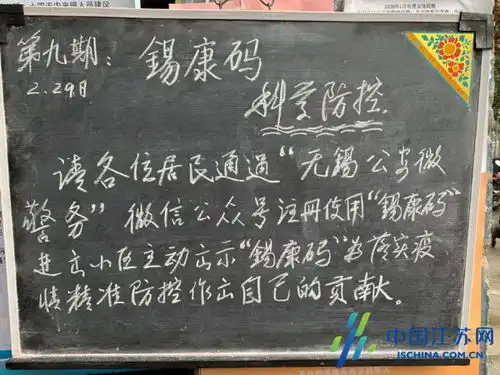 第九期：錫康码
2.29日
科学防控
请各位居民通過“无錫公安微
警务”微信公众号注册使用“錫康码”
進出小区主动出示“錫康码”为落实疫
情精准防控作出自己的贡献。
中国江苏网
ISCHINA.COM.CN